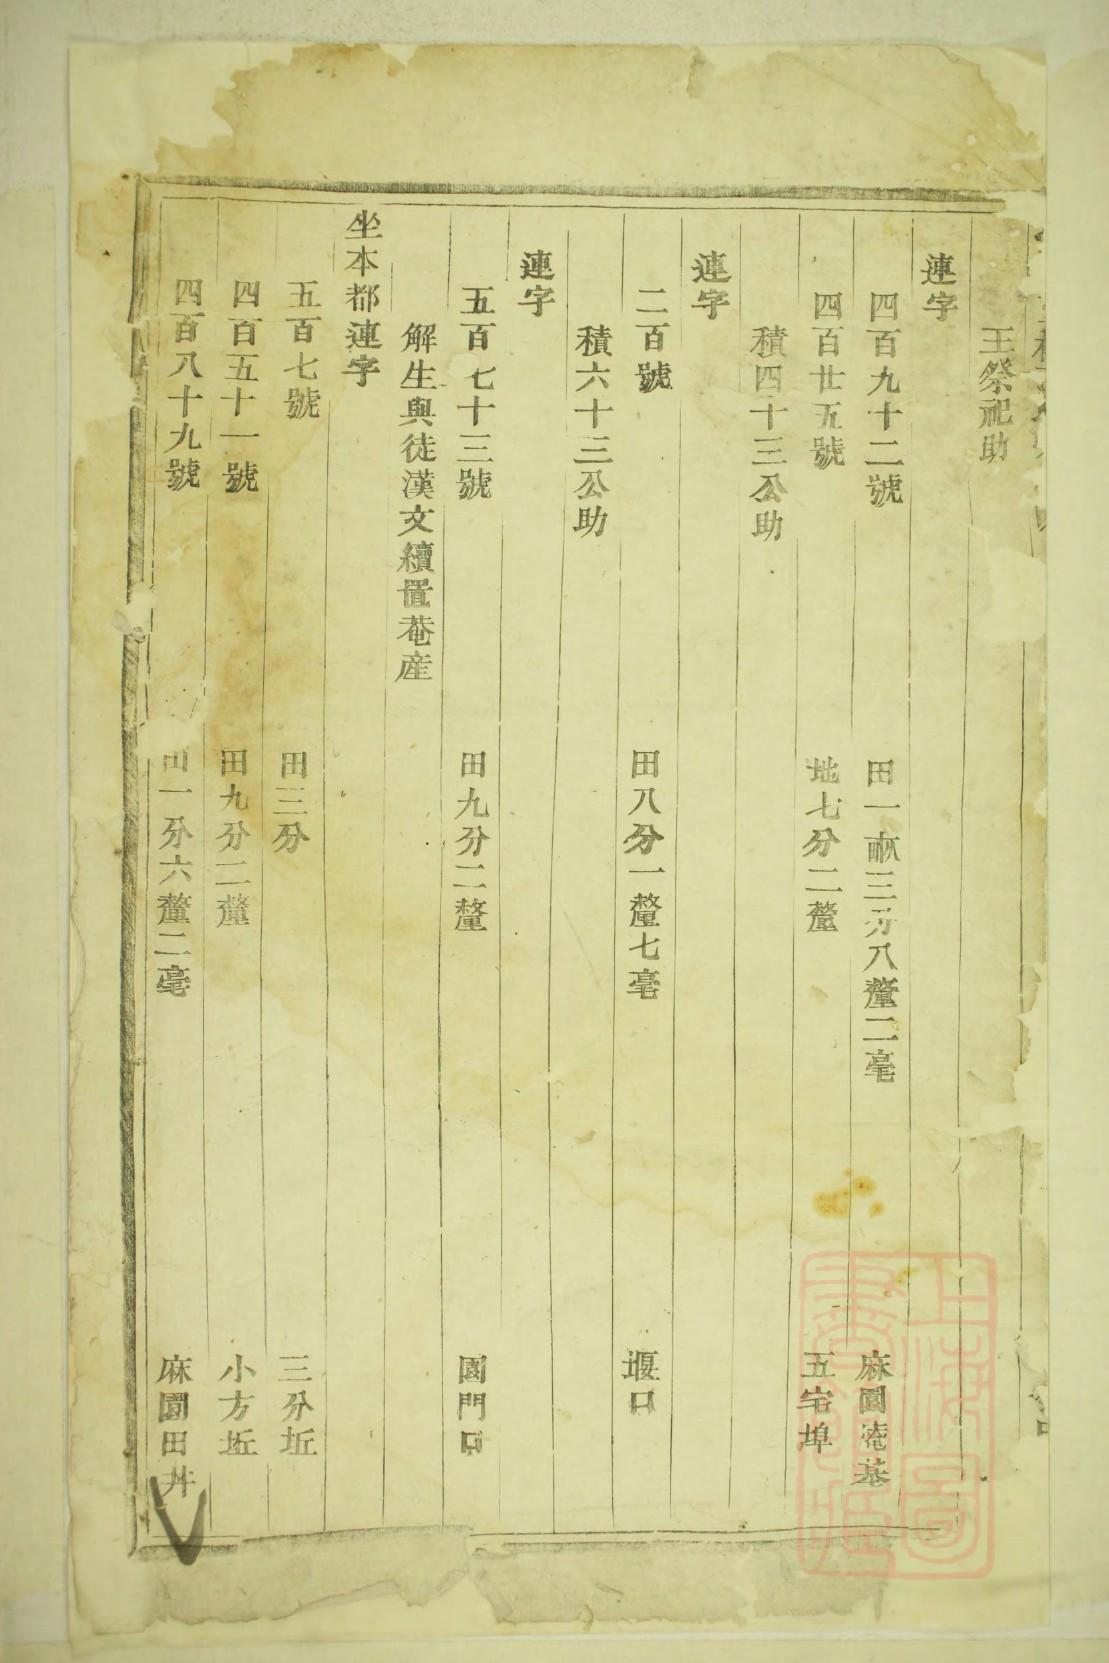 王祭祀助
連字
四百九十二號 田一畝三分八釐二毫 麻園菴基
四百廿五號 地七分二釐 五宅埠
積四十三公助
連字
二百號 田八分一釐七毫 堰口
積六十三公助
連字
五百七十三號 田九分二釐 園門口
解生與徒漢文續置菴産
坐本都連字
五百七號 田三分 三分坵
四百五十一號 田九分二釐 小方坵
四百八十九號 田一分六釐二毫 麻園田丼
上海圖書館藏